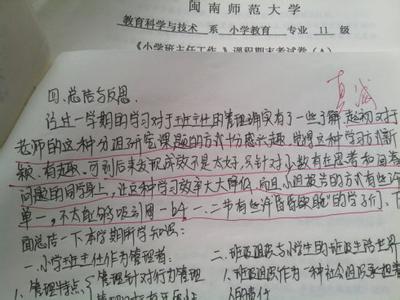 闽南师范大学
教育科学与技术 系 小学教育 专业 11 级
《小学班主任工作 》课程期末考试卷(A)
真诚
四.总结与反思.
经过一学期的学习对于班主任的管理确实有了一些了解.起初对于
老师的这种分组研究课题的方式十分感兴趣,觉得这种学习方式新
颖.有趣.可到后来发现成效不是太好,只针对小数有在思考和
问题的同学身上,让这种学习效率大大降低.而且小组报告的方式有些许
单一,不太能够吸引同一b4、一、二节有些许昏昏欲睡"的学子们、下
面总结一下本学期所学知识:
一.小学班主任作为管理者:
1.管理特点{管理针对行为管理
二.班级组织与小学生的班级生活世界
1.班级组织作为一种社会组织承担着